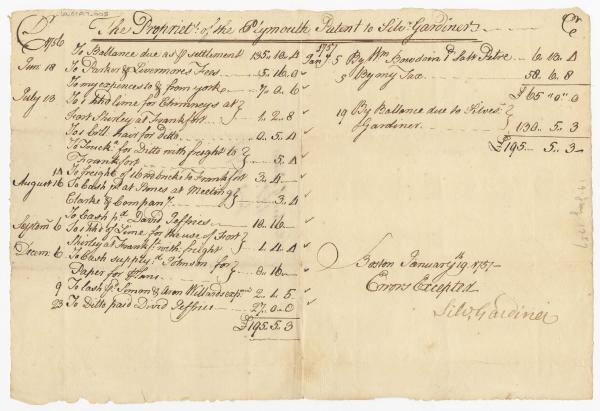 Dr The Propriets. of the Plymouth Patent to Silvr. Gardiner Cr
1756
To Ballance due as pr settlement 135.. 10.. 4
June 18 To Parker & Livermores Fees 5.. 16.. 0
To my expences to & from york 7.. 0.. 6
July 13 To 1 hhd lime for Chimneys at
Fort Shirley at Frankfort 1.. 2.. 8
To 20 bll hair for Ditto 0.. 5.. 4
To Truckg. for Ditto with freight to
Frankfort 5.. 4
14 To freight of bricks to Frankfort 3.. 4
August 16 To Cash pd. at Stones at Meeting
Clarke & Company 3.. 4
To Cash pd. David Jeffries 18.. 16
Septem 6 To 1 hhd of Lime for the use of Fort
Shirley at Frankft. with freight 1.. 4.. 4
Decem. 6 To Cash Johnson for
Paper for Plans 8.. 16
9 To Cash pd. Simon & Aaron Willards exps. 2.. 1.. 5
23 To Ditto paid David Jeffries 27.. 0.. 0
£195.. 5.. 3
1757
Jany. 5 By Wm Bowdoin pd. 6.. 13.. 4
5 By my Tax 58.. 6.. 8
£65 "0" 0
19 By Ballance due to Silvesr.
Gardiner 130.. 5.. 3
£195.. 5.. 3
Boston January 19. 1757
Errors Excepted
Silvr. Gardiner